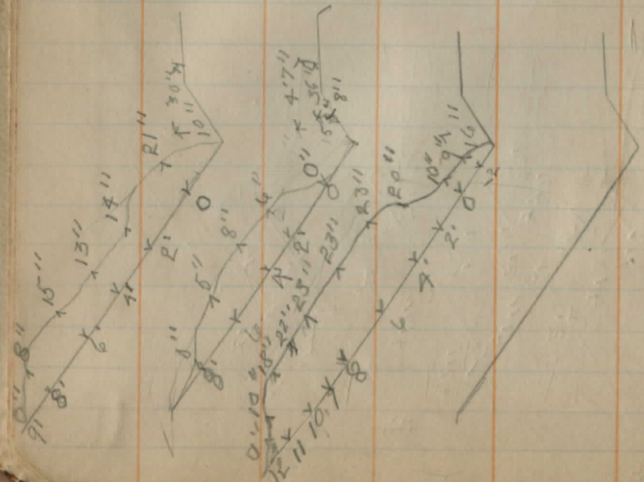 0" 8" 15" 13" 14" 21" 30" 10"
9' 8' 6' 4' 2' 0
8" 5" 8" 4" 0" 4'7"
8' 6 4' 2' 0
0" 10" 18" 22" 23" 23" 23" 20" 10" 9"
12 11 10 8 6 4' 2' 0 12